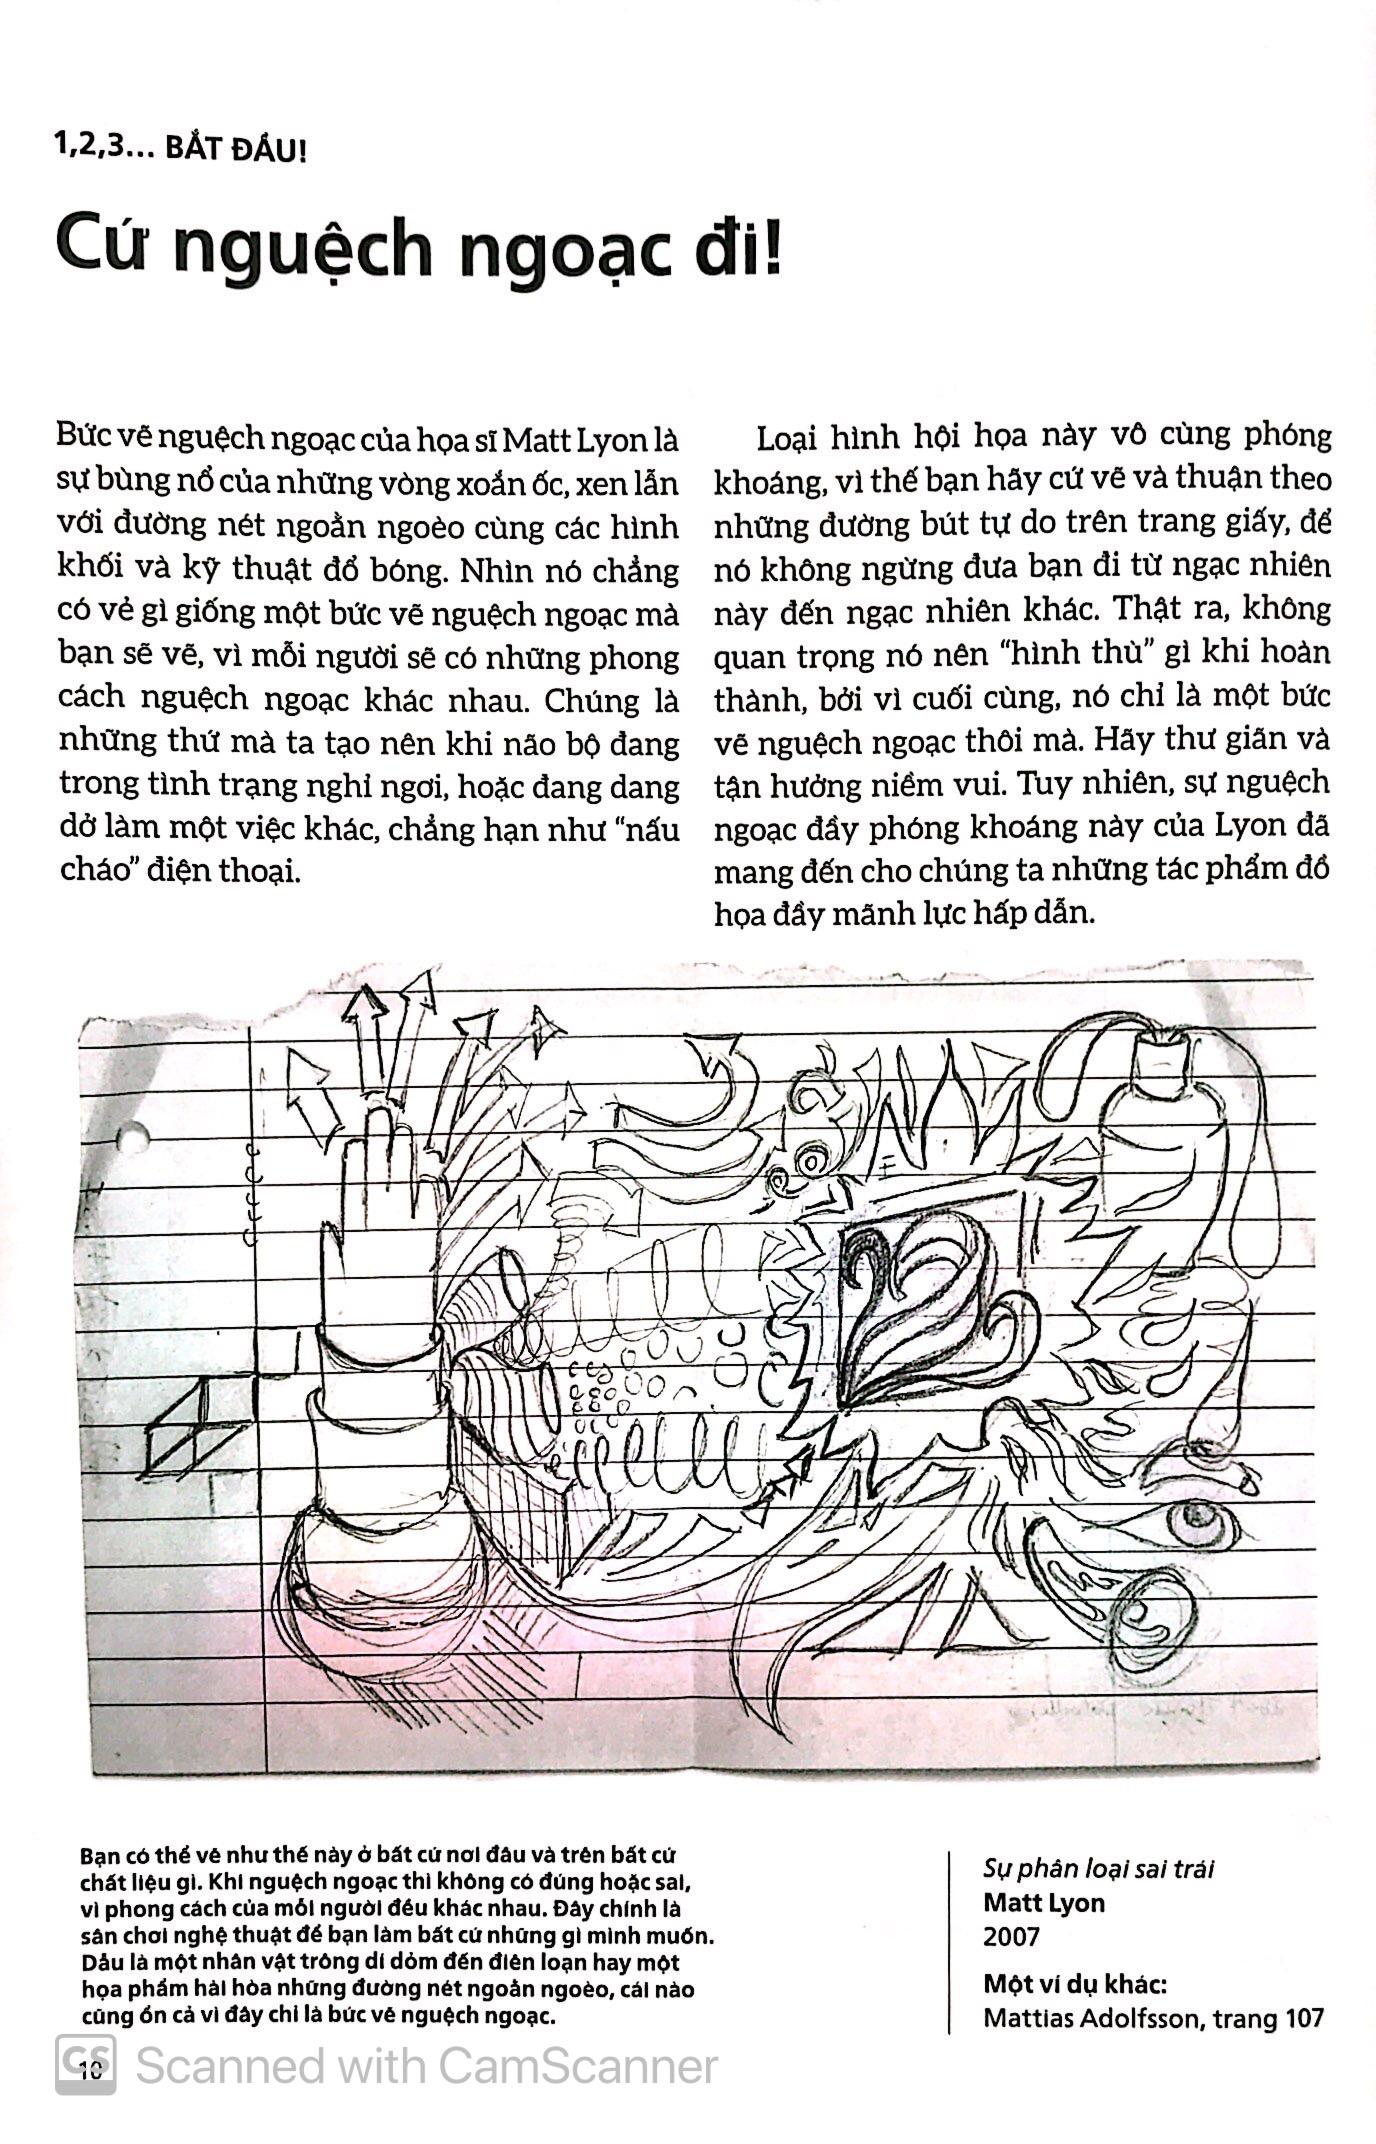 1,2,3... BẮT ĐẦU!
Cứ nguệch ngoạc đi!
Bức vẽ nguệch ngoạc của họa sĩ Matt Lyon là
sự bùng nổ của những vòng xoắn ốc, xen lẫn
với đường nét ngoằn ngoèo cùng các hình
khối và kỹ thuật đổ bóng. Nhìn nó chẳng
có vẻ gì giống một bức vẽ nguệch ngoạc mà
bạn sẽ vẽ, vì mỗi người sẽ có những phong
cách nguệch ngoạc khác nhau. Chúng là
những thứ mà ta tạo nên khi não bộ đang
trong tình trạng nghỉ ngơi, hoặc đang dang
dở làm một việc khác, chẳng hạn như “nấu
cháo” điện thoại.
Loại hình hội họa này vô cùng phóng
khoáng, vì thế bạn hãy cứ vẽ và thuận theo
những đường bút tự do trên trang giấy, để
nó không ngừng đưa bạn đi từ ngạc nhiên
này đến ngạc nhiên khác. Thật ra, không
quan trọng nó nên “hình thù” gì khi hoàn
thành, bởi vì cuối cùng, nó chỉ là một bức
vẽ nguệch ngoạc thôi mà. Hãy thư giãn và
tận hưởng niềm vui. Tuy nhiên, sự nguệch
ngoạc đầy phóng khoáng này của Lyon đã
mang đến cho chúng ta những tác phẩm đồ
họa đầy mãnh lực hấp dẫn.
Bạn có thể vẽ như thế này ở bất cứ nơi đâu và trên bất cứ
chất liệu gì. Khi nguệch ngoạc thì không có đúng hoặc sai,
vì phong cách của mỗi người đều khác nhau. Đây chính là
sân chơi nghệ thuật để bạn làm bất cứ những gì mình muốn.
Dẫu là một nhân vật trông dí dỏm đến điên loạn hay một
họa phẩm hài hòa những đường nét ngoằn ngoèo, cái nào
cũng ổn cả vì đây chỉ là bức vẽ nguệch ngoạc.
Sự phân loại sai trái
Matt Lyon
2007
Một ví dụ khác:
Mattias Adolfsson, trang 107
10
CS Scanned with CamScanner